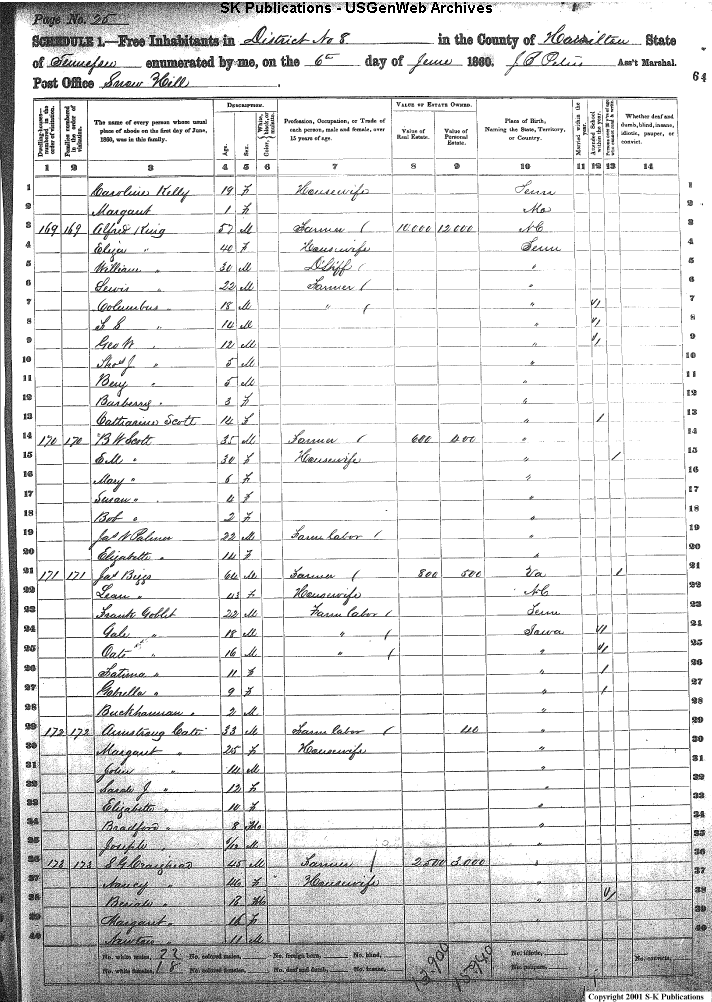 SK Publications - USGenWeb Archives
Page No. 25
SCHEDULE 1.—Free Inhabitants in District No 8 in the County of Hamilton State
of Tennessee enumerated by me, on the 6th day of June 1860. Ass't Marshal.
64
Post Office Snow Hill
Dwelling-houses—numbered in the order of visitation.
Families numbered in the order of visitation.
The name of every person whose usual place of abode on the first day of June, 1860, was in this family.
DESCRIPTION.
Age.
Sex.
Color, White, black, or mulatto.
Profession, Occupation, or Trade of each person, male and female, over 15 years of age.
VALUE OF ESTATE OWNED.
Value of Real Estate.
Value of Personal Estate.
Place of Birth, Naming the State, Territory, or Country.
Married within the year.
Attended School within the year.
Whether deaf and dumb, blind, insane, idiotic, pauper, or convict.
1 2 3 4 5 6 7 8 9 10 11 12 13 14
1 Caroline Kelly 19 F Housewife Tenn 1
2 Margaret 1 F Mo 2
3 169 169 Alfred King 57 M Farmer 10,000 12,000 NC 3
4 Eliza " 40 F Housewife Tenn 4
5 William " 30 M D Shff " 5
6 Lewis " 22 M Farmer " 6
7 Columbus " 18 M " " 1 7
8 " 14 M " 1 8
9 Geo W " 12 M " 1 9
10 Thos J " 5 M " 10
11 Benj " 5 M " 11
12 Barberry " 3 F " 12
13 Catharine Scott 14 F " 1 13
14 170 170 B W Scott 35 M Farmer 600 400 " 14
15 E M " 30 F Housewife " 1 15
16 Mary " 6 F " 16
17 Susan " 4 F " 17
18 Bob " 2 F " 18
19 Jas N Palmer 22 M Farm labor " 19
20 Elizabeth " 14 F " 20
21 171 171 Jas Biggs 64 M Farmer 800 500 Va 1 21
22 Lean " 43 F Housewife NC 22
23 Frank Goblet 22 M Farm labor Tenn 23
24 Gale " 18 M " Iowa 1 24
25 Oate " 16 M " " 1 25
26 Fatima " 11 F " 1 26
27 Gabrella " 9 F " 1 27
28 Buckhannan " 2 M " 28
29 172 172 Armstrong Cate 33 M Farm labor 40 " 29
30 Margaret " 25 F Housewife " 30
31 John " 14 M " 31
32 Sarah J " 12 F " 32
33 Elizabeth " 10 F " 33
34 Bradford " 8 M " 34
35 Joseph " M " 35
36 173 173 S G Craighead 45 M Farmer 2,500 3,000 " 36
37 Nancy " 46 F Housewife " 37
38 " 18 M " 1 38
39 Margaret " 16 F " 39
40 Newton " 11 M 40
No. white males, 22 No. colored males, No. foreign born, No. blind, No. idiotic, No. convicts,
No. white females, 18 No. colored females, No. deaf and dumb, No. insane, No. paupers,
13,900 15,940
Copyright 2001 S-K Publications